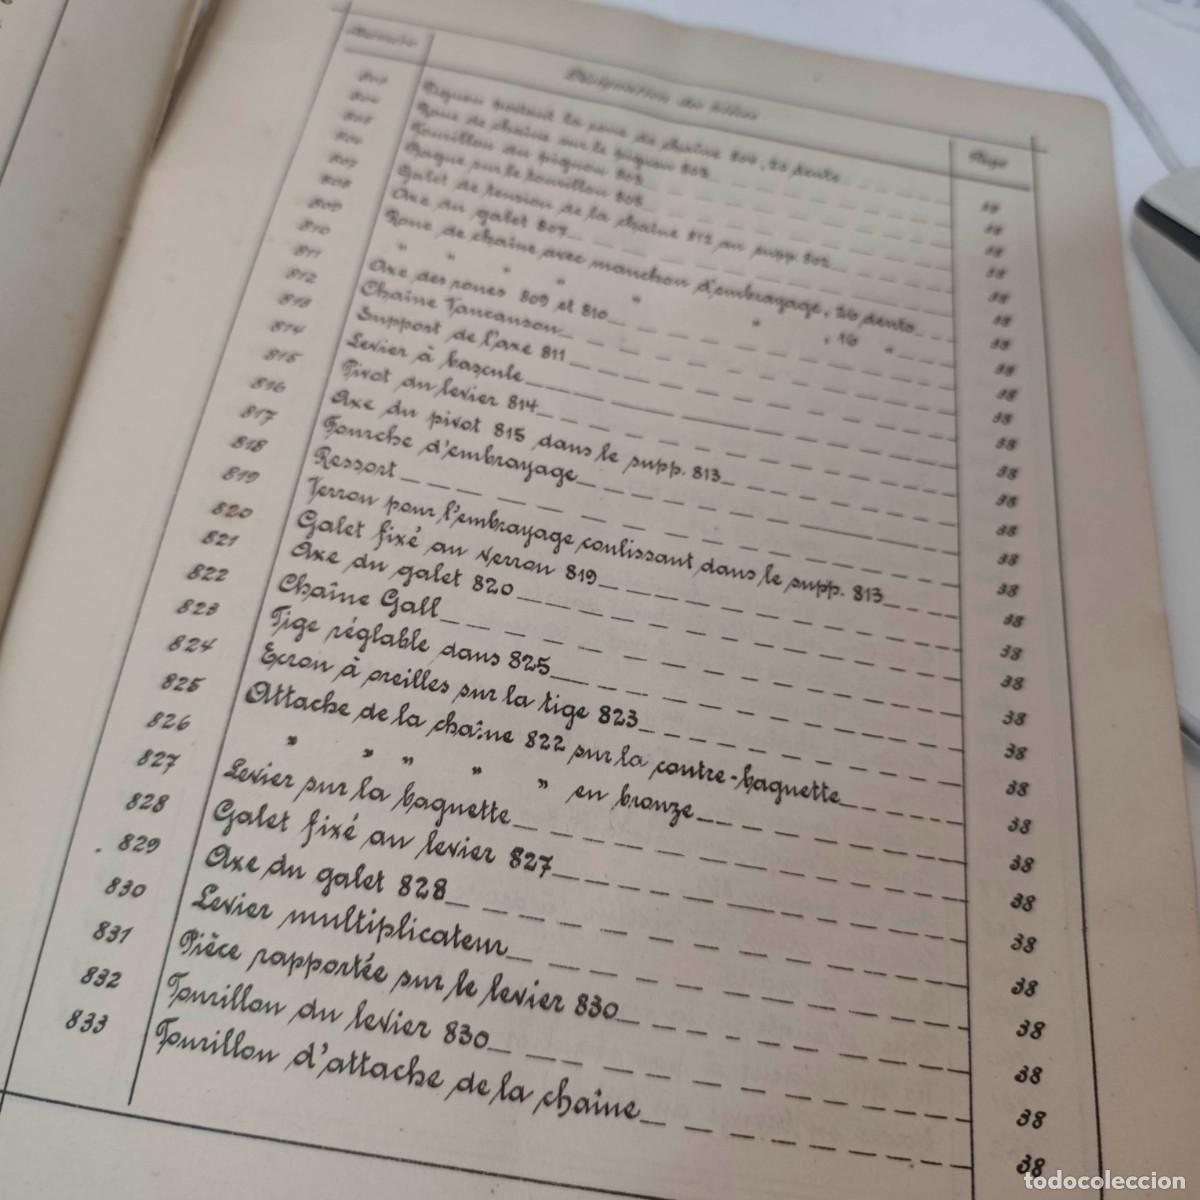 Numéro Désignation du pièces Page
803 Pignon portant la roue de chaîne 804, 26 dents 38
804 Roue de chaîne sur le pignon 803 38
805 Tourillon du pignon 803 38
806 Bague sur le tourillon 805 38
807 Galet de tension de la chaîne 812 au supp. 802 38
808 Axe du galet 807 38
809 Roue de chaîne avec manchon d'embrayage, 26 dents 38
810 " " " " " , 16 " 38
811 Axe des roues 809 et 810 38
812 Chaîne Vaucanson 38
813 Support de l'axe 811 38
814 Levier à bascule 38
815 Pivot du levier 814 38
816 Axe du pivot 815 dans le supp. 813 38
817 Fourche d'embrayage 38
818 Ressort 38
819 Verrou pour l'embrayage coulissant dans le supp. 813 38
820 Galet fixé au verrou 819 38
821 Axe du galet 820 38
822 Chaîne Gall 38
823 Tige réglable dans 825 38
824 Ecrou à oreilles sur la tige 823 38
825 Attache de la chaîne 822 sur la contre-baguette 38
826 " " " " " en bronze 38
827 Levier sur la baguette 38
828 Galet fixé au levier 827 38
829 Axe du galet 828 38
830 Levier multiplicateur 38
831 Pièce rapportée sur le levier 830 38
832 Tourillon du levier 830 38
833 Tourillon d'attache de la chaîne 38
todocoleccion